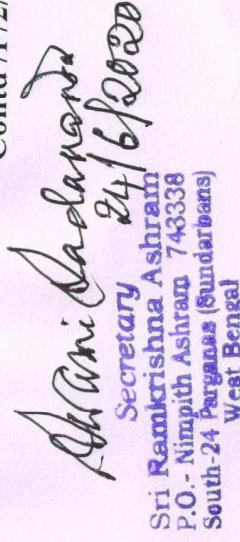 Contd /1/2/
Swami Sadananda
24/6/2020
Secretary
Sri Ramkrishna Ashram
P.O.- Nimpith Ashram 743338
South-24 Parganas (Sundarbans)
West Bengal